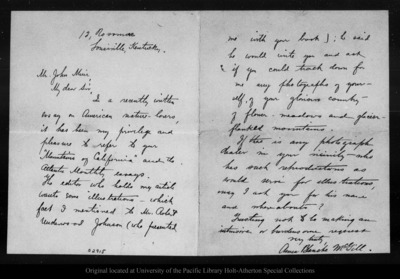 12, Rossmore
Louisville, Kentucky.
Mr. John Muir,
My dear Sir,
In a recently written
essay on American nature-lovers,
it has been my privilege and
pleasure to refer to your
"Mountains of California" and to
Atlantic Monthly essays.
The editor who holds my article
wants some illustrations — which
fact I mentioned to Mr. Robt
Underwood Johnson (who presented
me with your book); he said
he would write you and ask
if you could track down for
me any photographs of your-
self, of your glorious country
of flower-meadows and glacier-
flanked mountains.
If there is any photograph
dealer in your vicinity who
has such reproductions as
would serve for illustrations,
may I ask you for his name
and whereabouts?
Trusting not to be making an
intrusive or burdensome request
Anna Blanche McGill.
02915
Original located at University of the Pacific Library Holt-Atherton Special Collections